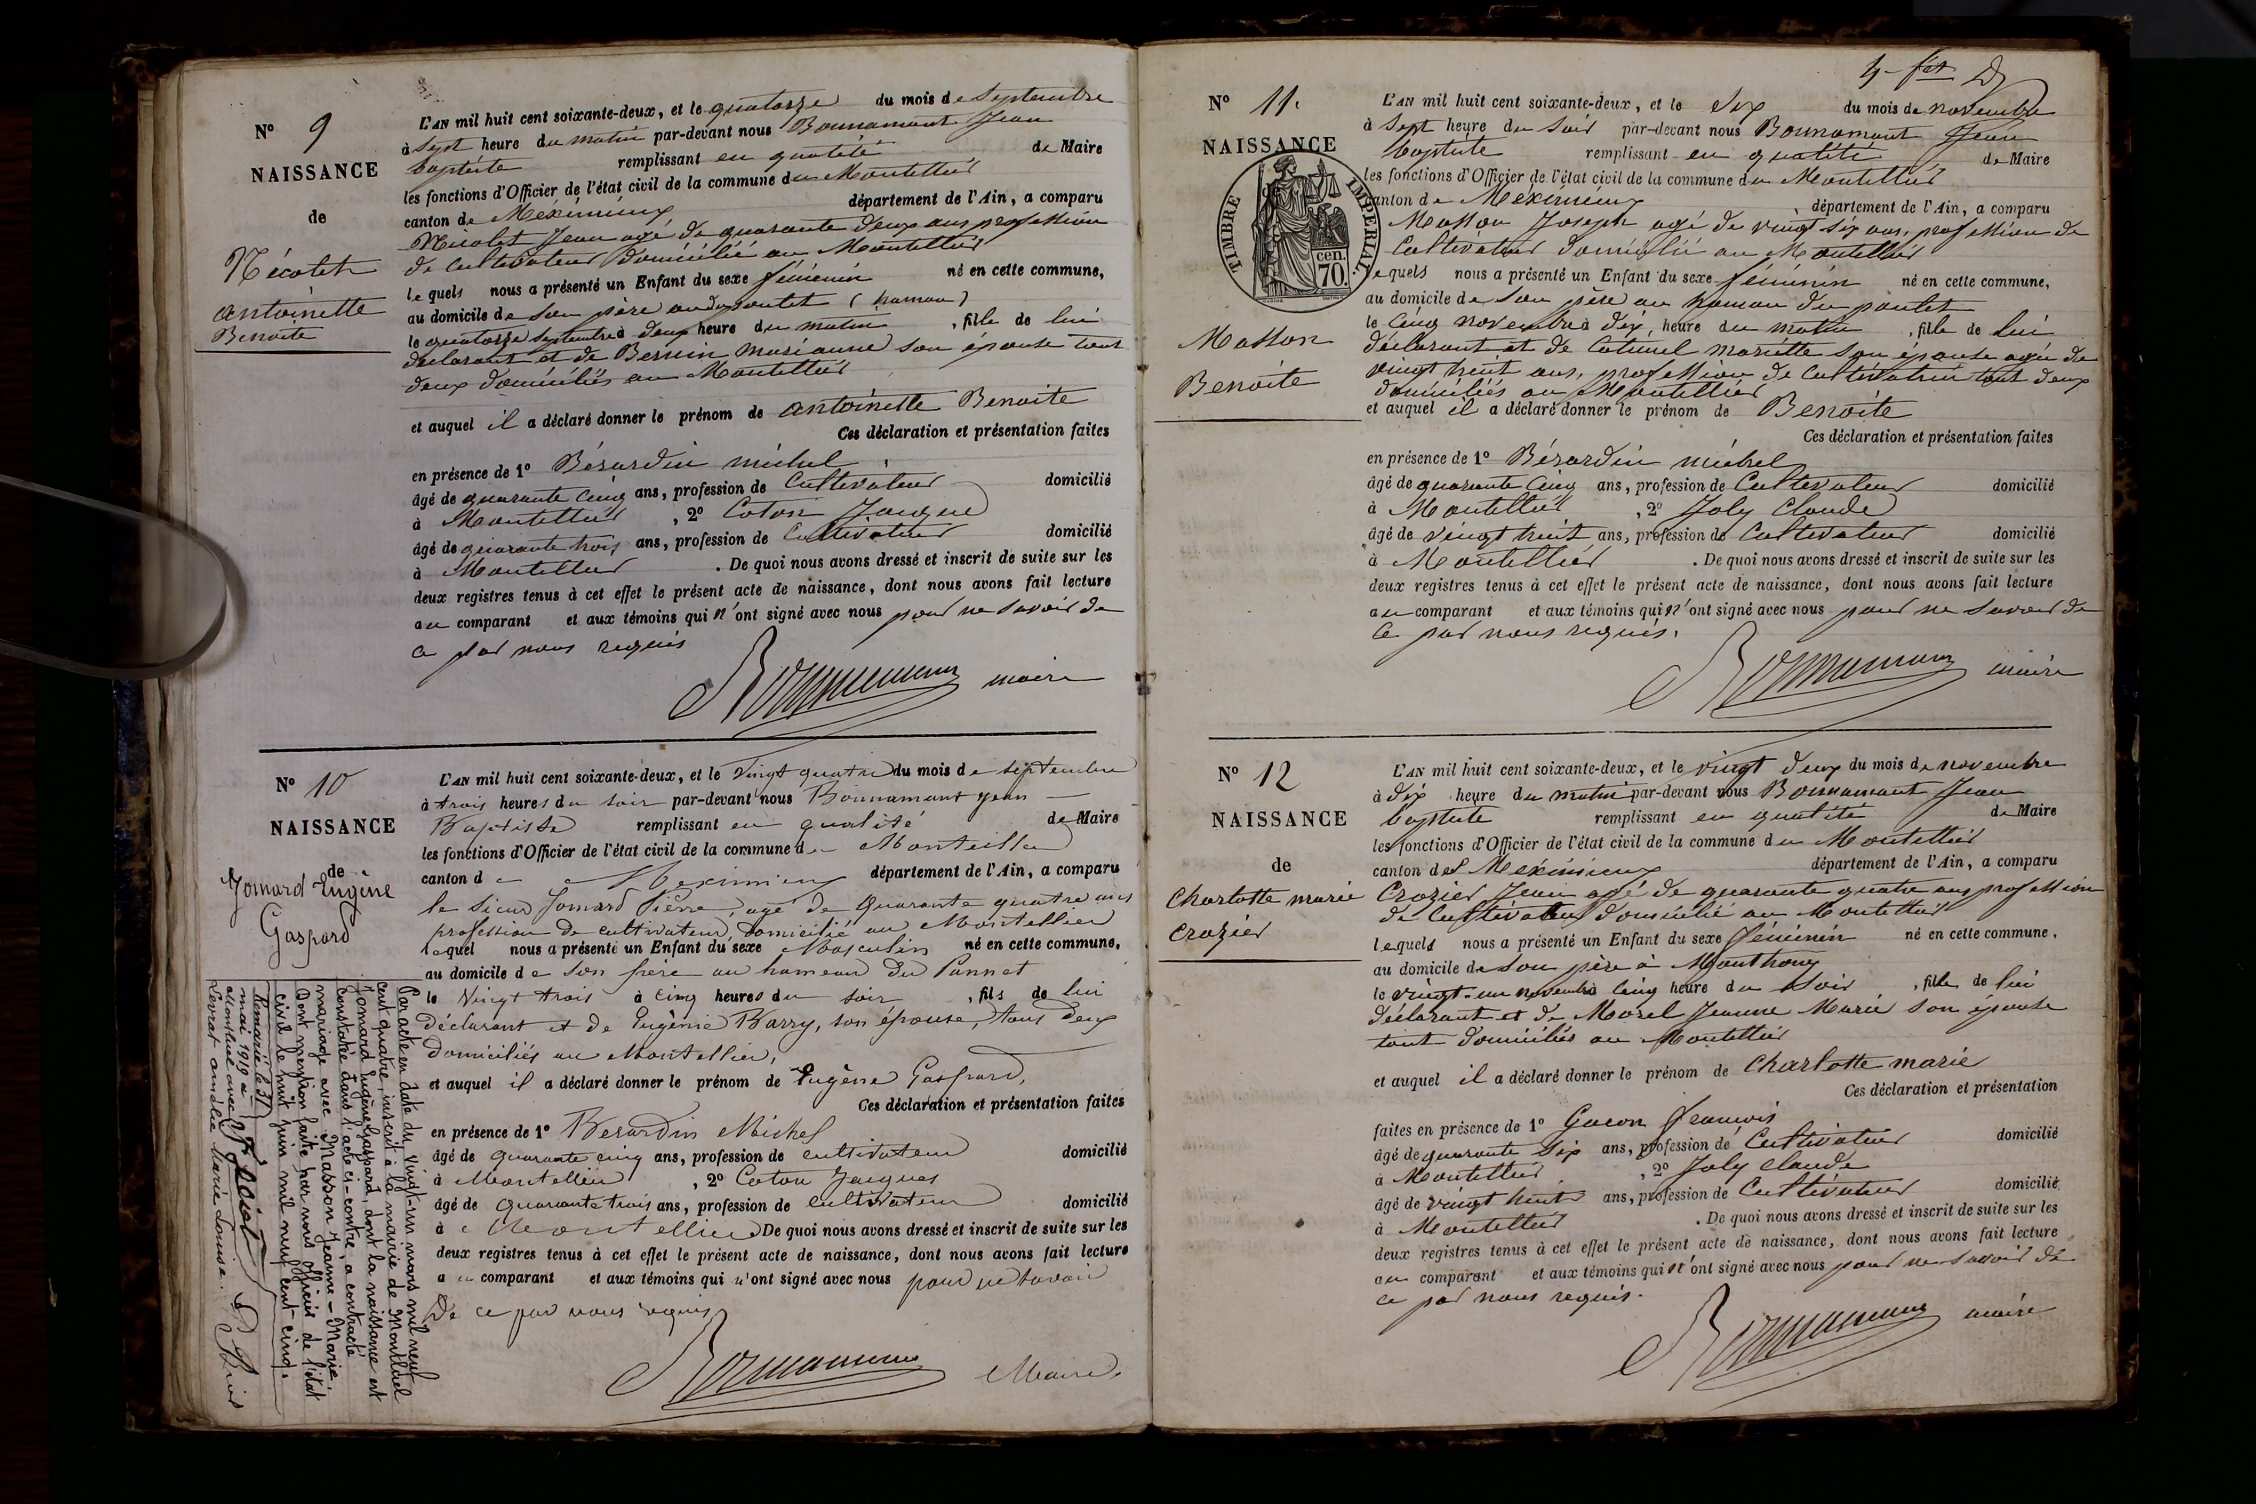 Nº 9
NAISSANCE
de
Nécolet
antoinette
Benoite
L'AN mil huit cent soixante-deux, et le quatorze du mois de Septembre
à Sept heure du matin par-devant nous Bonnamant Jean
baptiste remplissant en qualité de Maire
les fonctions d'Officier de l'état civil de la commune du Montellier
canton de Méximieux département de l'Ain, a comparu
Nicolet Jean agé de quarante deux ans profession
de cultivateur domicilié au Montellier
lequels nous a présenté un Enfant du sexe féminin né en cette commune,
au domicile de son père au du pontet (hamau)
le quatorze septembre à deux heure du matin, fille de lui
déclarant et de Bernin marianne son épouse tout
deux domiciliés au Montellier
et auquel il a déclaré donner le prénom de antoinette Benoite
Ces déclaration et présentation faites
en présence de 1º Bérardin michel
âgé de quarante cinq ans, profession de Cultivateur domicilié
à Montellier, 2º Coton Jacque
âgé de quarante trois ans, profession de Cultivateur domicilié
à Montellier. De quoi nous avons dressé et inscrit de suite sur les
deux registres tenus à cet effet le présent acte de naissance, dont nous avons fait lecture
au comparant et aux témoins qui n'ont signé avec nous pour ne savoir de
ce par nous requis
Bonnamant maire
Nº 10
NAISSANCE
de
Jomard Eugène
Gaspard
L'AN mil huit cent soixante-deux, et le Vingt quatre du mois de septembre
à trois heures du soir par-devant nous Bonnamant Jean
Baptiste remplissant en qualité de Maire
les fonctions d'Officier de l'état civil de la commune de Montellier
canton de Meximieux département de l'Ain, a comparu
le Sieur Jomard Pierre, agé de quarante quatre ans
profession de cultivateur, domicilié au Montellier
lequel nous a présenté un Enfant du sexe Masculin né en cette commune,
au domicile de son père au hameau du Pannet
le Vingt trois à cinq heures du soir, fils de lui
déclarant et de Eugénie Barry, son épouse, tous deux
domiciliés au Montellier,
et auquel il a déclaré donner le prénom de Eugène Gaspard,
Ces déclaration et présentation faites
en présence de 1º Berardin Michel
âgé de quarante cinq ans, profession de cultivateur domicilié
à Montellier, 2º Coton Jacques
âgé de quarante trois ans, profession de cultivateur domicilié
à Montellier De quoi nous avons dressé et inscrit de suite sur les
deux registres tenus à cet effet le présent acte de naissance, dont nous avons fait lecture
au comparant et aux témoins qui n'ont signé avec nous pour ne savoir
De ce par nous requis
Bonnamant Maire
Par acte en date du vingt-un mars mil neuf
cent quatre, inscrit à la mairie de Montluel
Jomard Eugène Gaspard, dont la naissance est
constatée dans l'acte ci-contre, a contracté
mariage avec Masson Jeanne-Marie.
Dont mention faite par nous officier de l'état
civil le huit juin mil neuf cent-cinq.
Remarié le 31
mai 1919 à
Montluel avec
Levrat amélie Marie Louise.
4 fet
Nº 11.
NAISSANCE
de
TIMBRE IMPERIAL.
cen. 70.
Masson
Benoite
L'AN mil huit cent soixante-deux, et le Six du mois de novembre
à Sept heure du Soir par-devant nous Bonnamant Jean
baptiste remplissant en qualité de Maire
les fonctions d'Officier de l'état civil de la commune du Montellier
canton de Méximieux, département de l'Ain, a comparu
Masson Joseph agé de vingt six ans, profession de
Cultivateur domicilié au Montellier
lequels nous a présenté un Enfant du sexe féminin né en cette commune,
au domicile de son père au hamau du pontet
le cinq novembre à dix heure du matin, fille de lui
déclarant et de Coturel mariette son épouse agée de
vingt huit ans, profession de Cultivatrice tout deux
domiciliés au Montellier
et auquel il a déclaré donner le prénom de Benoite
Ces déclaration et présentation faites
en présence de 1º Bérardin michel
âgé de quarante cinq ans, profession de Cultivateur domicilié
à Montellier, 2º Joly Claude
âgé de vingt huit ans, profession de Cultivateur domicilié
à Montellier. De quoi nous avons dressé et inscrit de suite sur les
deux registres tenus à cet effet le présent acte de naissance, dont nous avons fait lecture
au comparant et aux témoins qui n'ont signé avec nous pour ne savoir de
ce par nous requis.
Bonnamant maire
Nº 12
NAISSANCE
de
Charlotte marie
Crozier
L'AN mil huit cent soixante-deux, et le vingt deux du mois de novembre
à dix heure du matin par-devant nous Bonnamant Jean
baptiste remplissant en qualité de Maire
les fonctions d'Officier de l'état civil de la commune du Montellier
canton de Méximieux département de l'Ain, a comparu
Crozier Jean agé de quarante quatre ans profession
de Cultivateur domicilié au Montellier
lequels nous a présenté un Enfant du sexe féminin né en cette commune,
au domicile de son père à Monthoux
le vingt-un novembre à cinq heure du soir, fille de lui
déclarant et de Morel Jeanne Marie son épouse
tout domiciliés au Montellier
et auquel il a déclaré donner le prénom de Charlotte marie
Ces déclaration et présentation
faites en présence de 1º Gacon francois
âgé de quarante six ans, profession de Cultivateur domicilié
à Montellier, 2º Joly claude
âgé de vingt huit ans, profession de Cultivateur domicilié
à Montellier. De quoi nous avons dressé et inscrit de suite sur les
deux registres tenus à cet effet le présent acte de naissance, dont nous avons fait lecture
au comparant et aux témoins qui n'ont signé avec nous pour ne savoir de
ce par nous requis.
Bonnamant maire